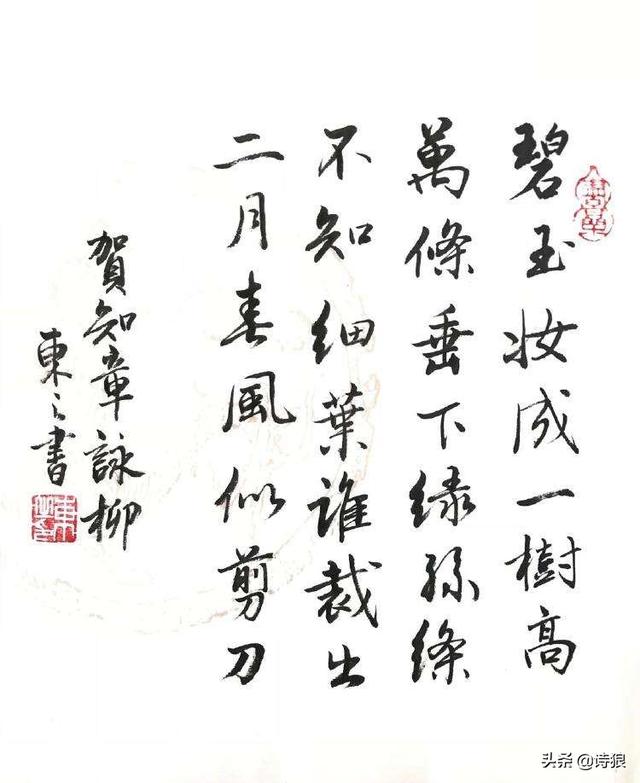 碧玉妆成一樹高
萬條垂下緑絲絛
不知細葉誰裁出
二月春風似剪刀
賀知章詠柳
東之書
头条 @诗狼